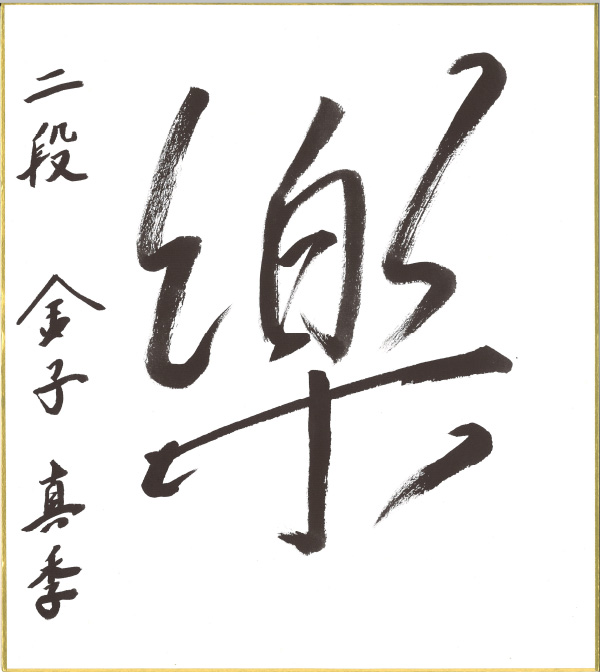 樂
二段 金子 真季